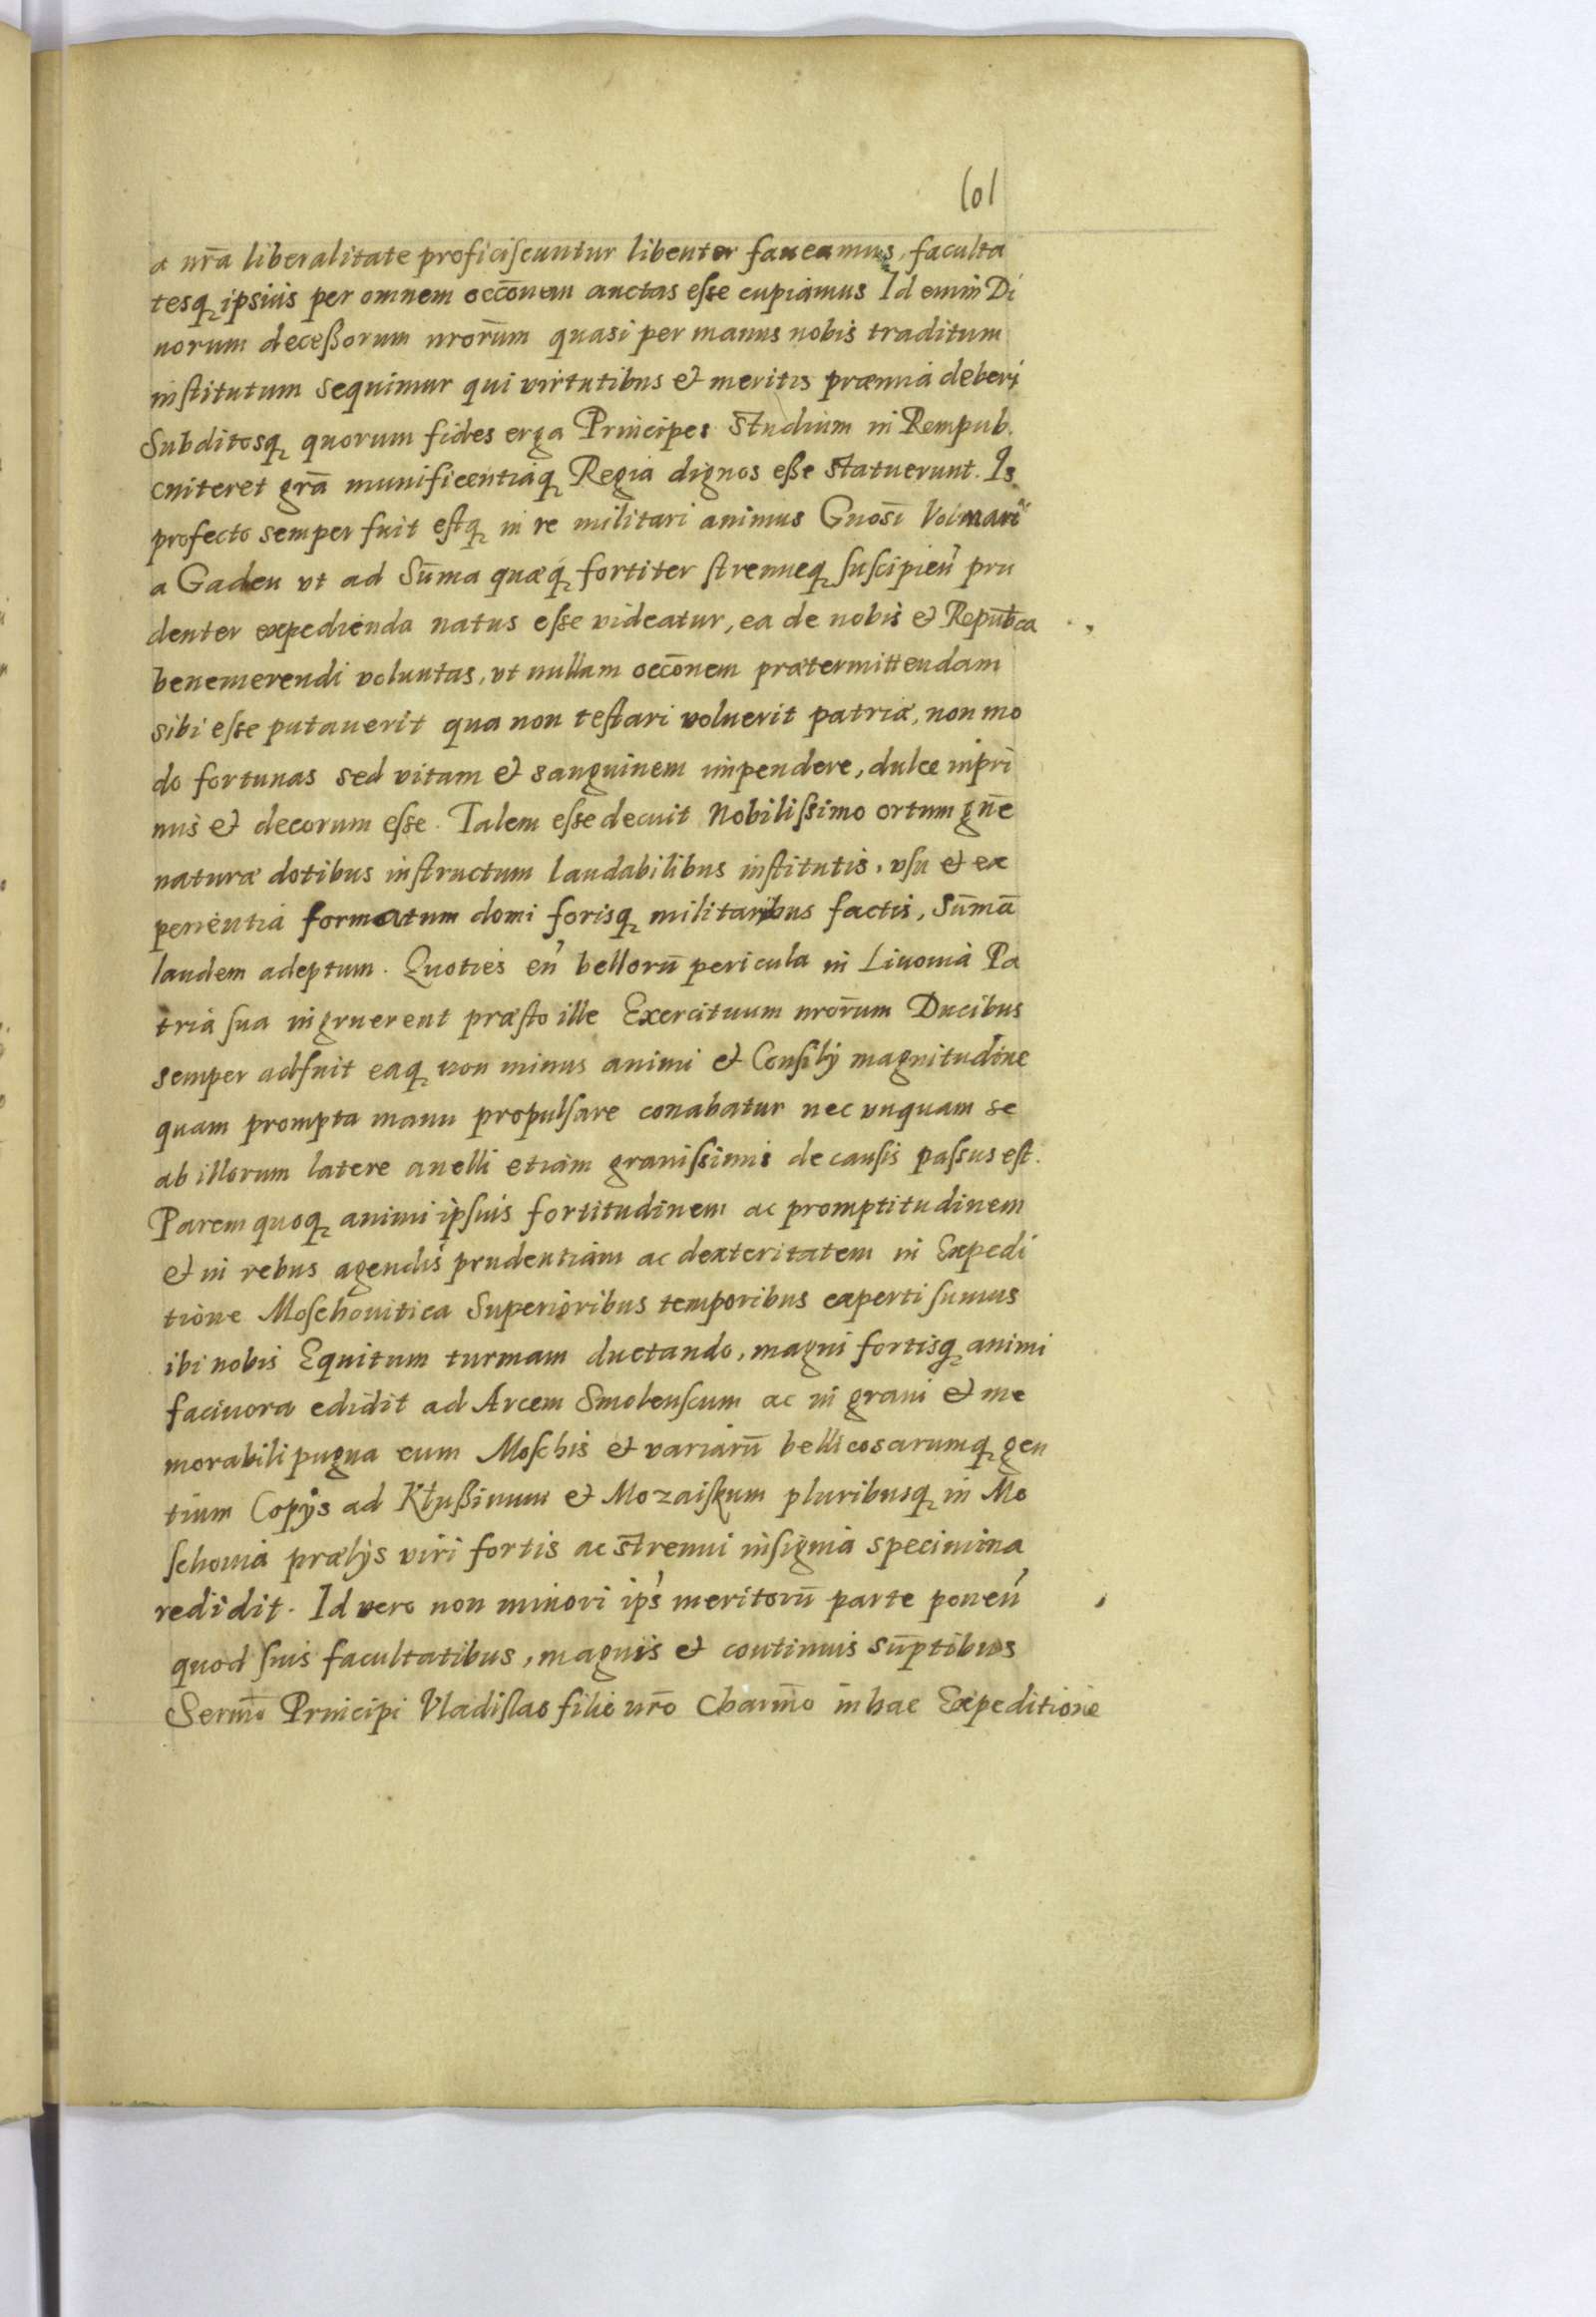 101
a nr̄a liberalitate proficiſcuntur libenter faueamus, faculta
tesq ipsius per omnem occōnem auctas eſse cupiamus Id enim Di
uorum deceßorum nrōrum quasi per manus nobis traditum
inſtitutum sequimur qui virtutibus & meritis præmia deberi
Subditosq quorum fides erga Principes Studium in Rempub.
eniteret grā munificentiaq Regia dignos eße statuerunt. Is
profecto semper fuit eſtq in re militari animus Gnosī Volmari
a Gaden vt ad Sūma quæq fortiter ſtrenueq ſuſcipien' pru
denter expedienda natus eſse videatur, ea de nobis & Repub̄ca
benemerendi voluntas, vt nullam occōnem prætermittendam
sibi eſse putauerit qua non teſtari voluerit patriæ, non mo
do fortunas sed vitam & sanguinem impendere, dulce inpri
mis & decorum eſse. Talem eſse decuit Nobiliſsimo ortum gn̄e
naturæ dotibus inſtructum laudabilibus inſtitutis, vſu & ex
perientia formatum domi forisq militaribus factis, Sūmā
laudem adeptum. Quoties en' bellorū pericula in Liuonia Pa
tria ſua ingruerent præſto ille Exercituum nrōrum Ducibus
semper adfuit eaq non minus animi & Conſilij magnitudine
quam prompta manu propulſare conabatur nec vnquam se
ab illorum latere auelli etiam grauiſsimis de cauſis paſsus eſt.
Parem quoq animi ipſius fortitudinem ac promptitudinem
& in rebus agendis prudentiam ac dexteritatem in Expedi
tione Moſchouitica Superioribus temporibus experti ſumus
ibi nobis Equitum turmam ductando, magni fortisq animi
facinora edidit ad Arcem Smolenſcum ac in graui & me
morabili pugna cum Moſchis & variarū bellicosarumq gen
tium Copijs ad Kłußinum & Mozaiſkum pluribusq in Mo
ſchouia prælijs viri fortis ac strenui inſignia specimina
redidit. Id vero non minori ips' meritorū parte ponen'
quod ſuis facultatibus, magnis & continuis sūptibus
Serm̄o Principi Vladiſlao filio nrō Charm̄o in hac Expeditione